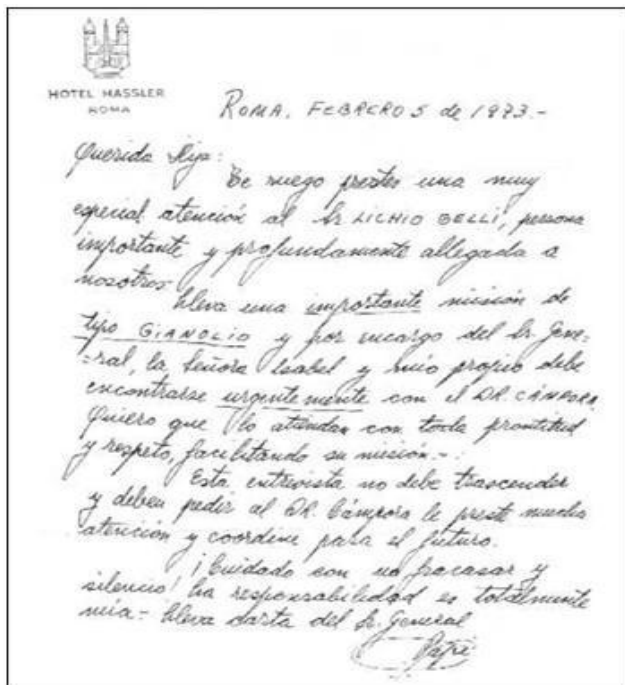 HOTEL HASSLER
ROMA
ROMA, FEBRERO 5 de 1973.-
Querida Hija:
Te ruego prestes una muy
especial atención al Sr LICHIO GELLI, persona
importante y profundamente allegada a
nosotros.-
Lleva una importante misión de
tipo GIANOLIO y por encargo del Sr. Gene-
-ral, la Señora Isabel y mío propio debe
encontrarse urgentemente con el DR. CÁMPORA
Quiero que lo atiendan con toda prontitud
y respeto, facilitando su misión.-
Esta entrevista no debe trascender
y deben pedir al DR. Cámpora le preste mucha
atención y coordine para el futuro.
¡Cuidado con no fracasar y
silencio! La responsabilidad es totalmente
mía - Lleva carta del Sr. General